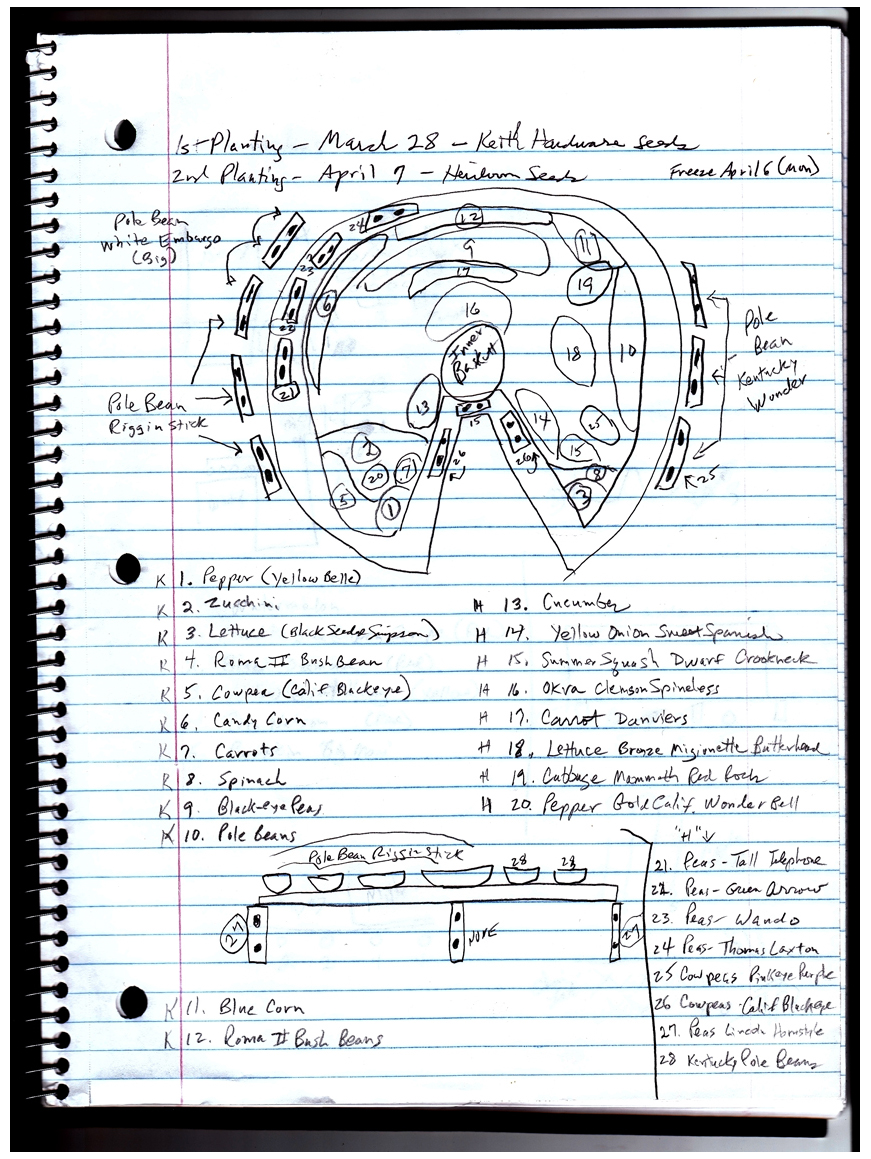 1st Planting - March 28 - Keith Hardware Seeds
2nd Planting - April 7 - Heirloom Seeds
Freeze April 6 (Mon)
Pole Bean
White Embargo
(Big)
24
12
23
9
11
17
19
6
16
22
Inner
Baskett
18
10
Pole
Bean
Kentucky
Wonder
21
Pole Bean
Riggin Stick
13
15
14
25
2
26
26
15
20
7
8
25
5
1
3
K 1. Pepper (Yellow Belle)
K 2. Zucchini
K 3. Lettuce (Black Seeded Simpson)
K 4. Roma II Bush Bean
K 5. Cowpea (Calif. Blackeye)
K 6. Candy Corn
K 7. Carrots
K 8. Spinach
K 9. Black-eye Peas
K 10. Pole Beans
H 13. Cucumber
H 14. Yellow Onion Sweet Spanish
H 15. Summer Squash Dwarf Crookneck
H 16. Okra Clemson Spineless
H 17. Carrot Danviers
H 18. Lettuce Bronze Mignonette Butterhead
H 19. Cabbage Mammoth Red Rock
H 20. Pepper Gold Calif. Wonder Bell
Pole Bean Riggin Stick
28
28
27
NONE
27
K 11. Blue Corn
K 12. Roma II Bush Beans
"H"↓
21. Peas - Tall Telephone
22. Peas - Green Arrow
23. Peas - Wando
24 Peas - Thomas Laxton
25 Cowpeas Pinkeye Purple
26 Cowpeas - Calif Blackeye
27. Peas Lincoln Homestyle
28 Kentucky Pole Beans